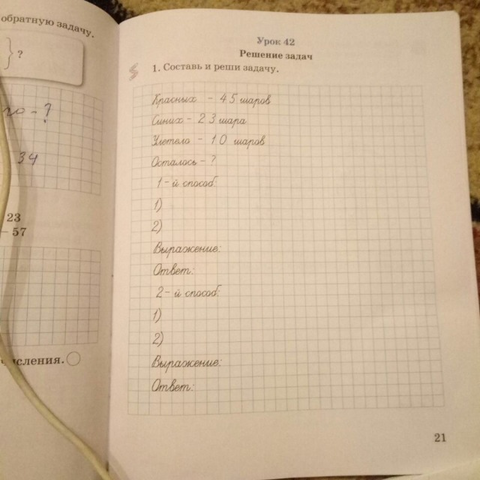 обратную задачу.
} ?
го - ?
34
23
- 57
числения.
Урок 42
Решение задач
1. Составь и реши задачу.
Красных - 45 шаров
Синих - 23 шара
Улетело - 10 шаров
Осталось - ?
1 - й способ:
1)
2)
Выражение:
Ответ:
2 - й способ:
1)
2)
Выражение:
Ответ:
21